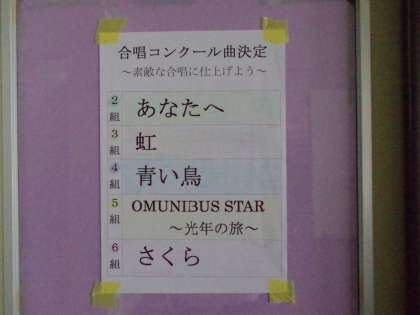 合唱コンクール曲決定
～素敵な合唱に仕上げよう～
2組 あなたへ
3組 虹
4組 青い鳥
5組 OMUNIBUS STAR
～光年の旅～
6組 さくら